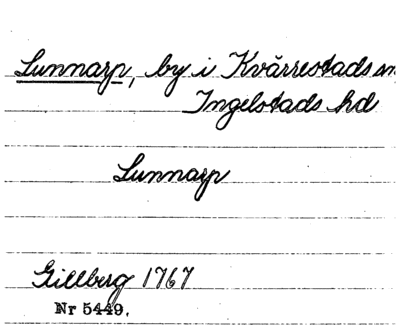 Lunnarp, by i Kvärrestads sn
Ingelstads hd
Lunnarp
Gillberg 1767
Nr 5449.